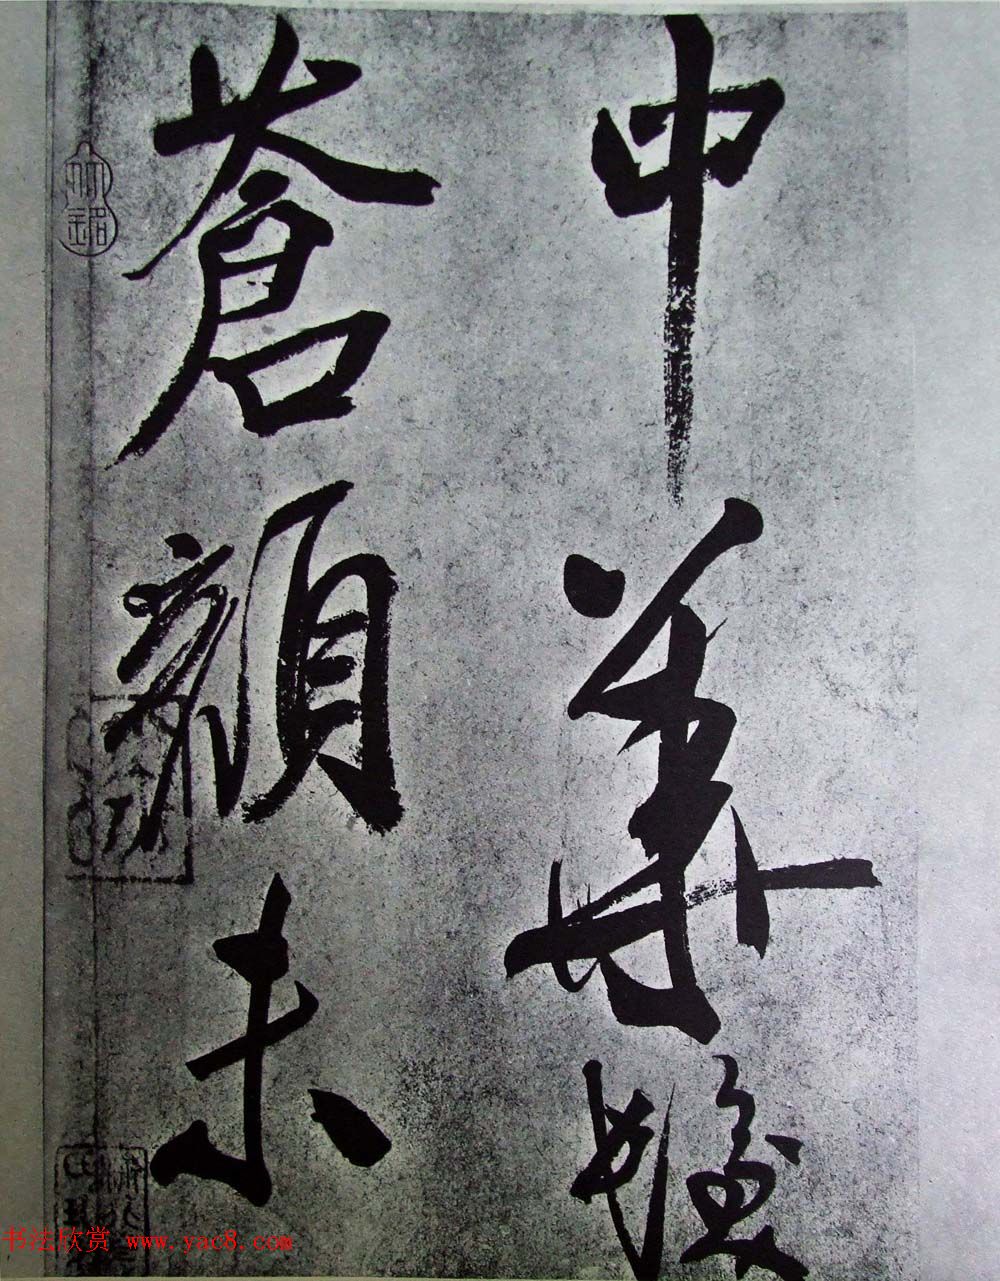 中華髮
蒼顏未
书法欣赏 www.yac8.com